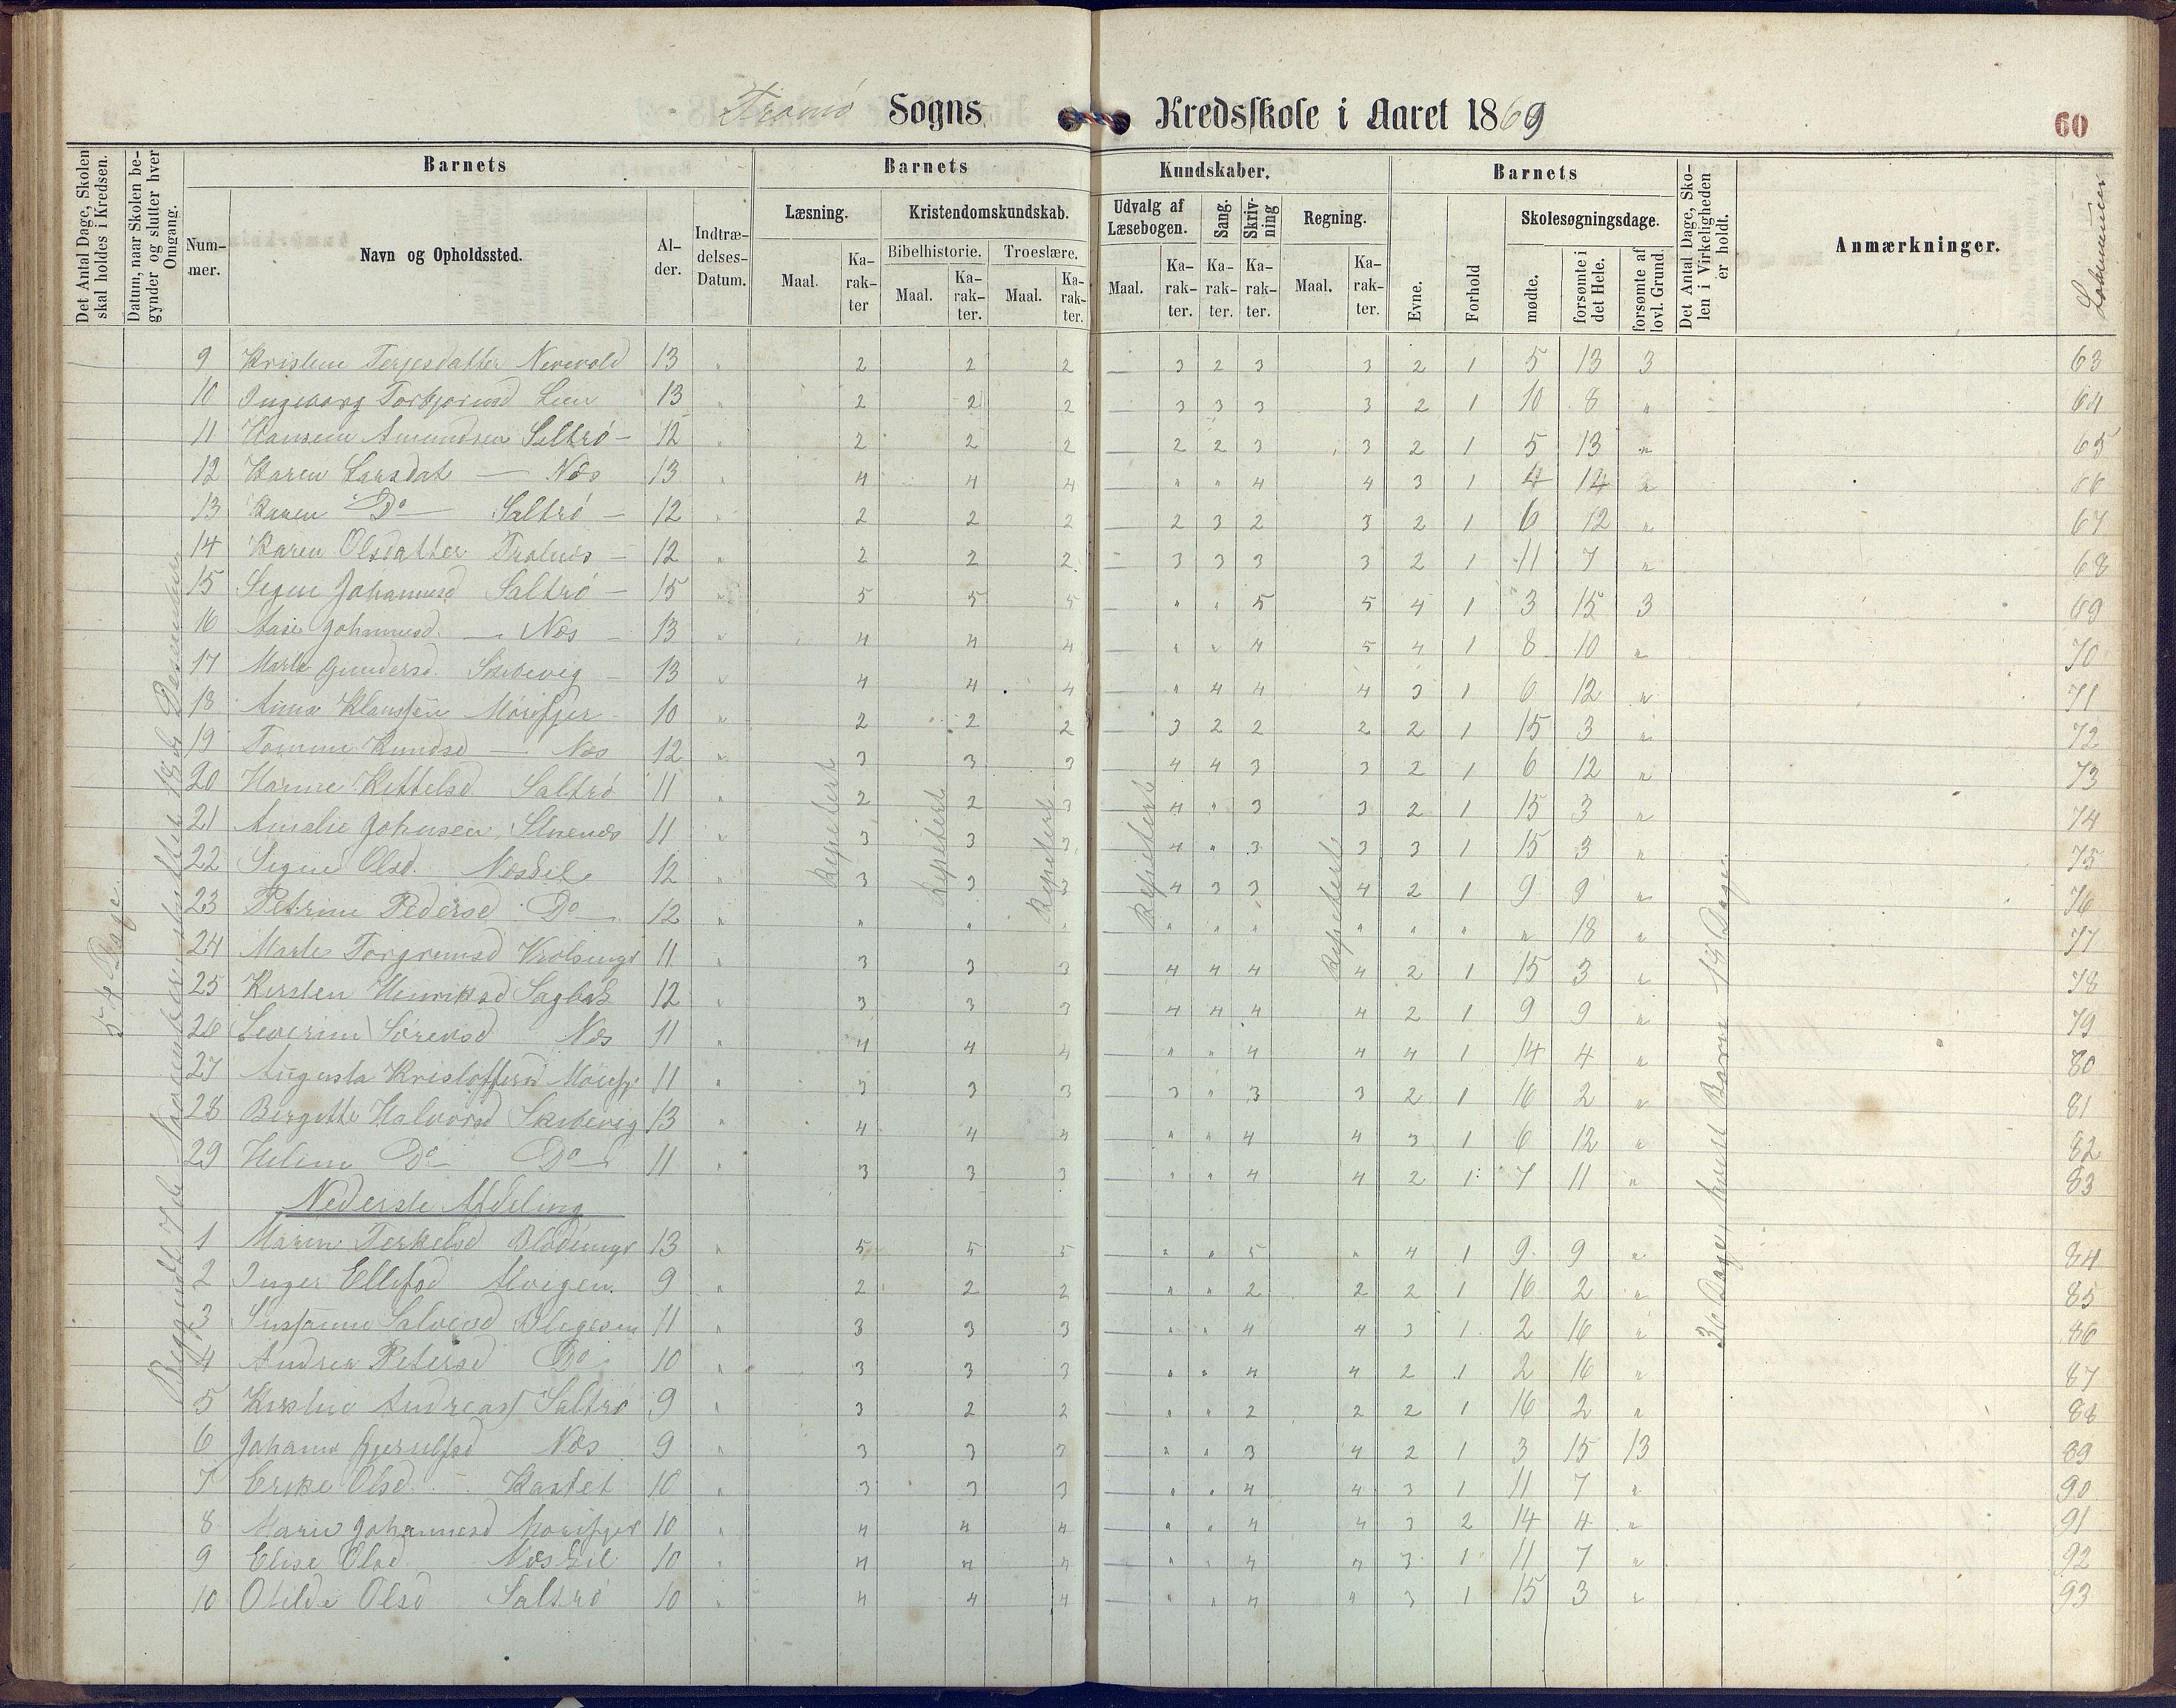 Tromö Sogns Kredsskole i Aaret 1869
60
Det Antal Dage, Skolen skal holdes i Kredsen.
Datum, naar Skolen begynder og slutter hver Omgang.
Barnets
Nummer.
Navn og Opholdssted.
Alder.
Indtrædelses-Datum.
Barnets Kundskaber.
Læsning.
Maal.
Karakter
Kristendomskundskab.
Bibelhistorie.
Maal.
Karakter.
Troeslære.
Maal.
Karakter.
Udvalg af Læsebogen.
Maal.
Karakter.
Sang.
Karakter.
Skrivning
Karakter.
Regning.
Maal.
Karakter.
Barnets
Evne.
Forhold
Skolesøgningsdage.
mødte.
forsømte i det Hele.
forsømte af lovl. Grund.
Det Antal Dage, Skolen i Virkeligheden er holdt.
Anmærkninger.
Lobenummer
54 Dage
Begyndt 7de November sluttet 18de December
Repetert
Repetert
Repetert
Repetert
Repetert
36 Dage, hvert Barn 18 Dage.
9 Kristine Terjesdatter Nerevold 13 " 2 2 2 — 3 2 3 3 2 1 5 13 3 63
10 Ingeborg Torbjørnsd Lien 13 " 2 2 2 — 3 3 3 3 2 1 10 8 " 64
11 Hansine Amundsen Saltrö — 12 " 2 2 2 — 2 2 3 3 2 1 5 13 " 65
12 Karen Larsdat — Næs 13 " 4 4 4 — " " 4 4 3 1 4 14 " 66
13 Karen Do — Saltrö — 12 " 2 2 2 — 2 3 2 3 2 1 6 12 " 67
14 Karen Olsdatter — 12 " 2 2 2 — 3 3 3 3 2 1 11 7 " 68
15 Signe Johannesd Saltrö — 15 " 5 5 5 — " " 5 5 4 1 3 15 3 69
16 Aase Johannesd. — Næs — 13 " 4 4 4 — " " 4 5 4 1 8 10 " 70
17 Marte Gundersd. Skibevig — 13 " 4 4 4 — " 4 4 4 3 1 6 12 " 71
18 Anna Klausen Mörefjer — 10 " 2 2 2 — 3 2 2 2 2 1 15 3 " 72
19 Tomine Knudsd — Næs 12 " 3 3 3 — 4 4 3 3 2 1 6 12 " 73
20 Hanne Kittelsd. Saltrö 11 " 2 2 3 — 4 " 3 3 2 1 15 3 " 74
21 Amalie Johnsen, Stuenes 11 " 3 3 3 — 4 " 3 3 3 1 15 3 " 75
22 Signe Olsd. Næskil 12 " 3 3 3 — 4 3 3 4 2 1 9 9 " 76
23 Petrine Pedersd Do — 12 " " " " " " " " " " " 18 " 77
24 Marte Torgrimsd 11 " 3 3 3 — 4 4 4 4 2 1 15 3 " 78
25 Kirsten Henriksd Sagbæk 12 " 3 3 3 — 4 4 4 4 2 1 9 9 " 79
26 Severine Sörensd Næs 11 " 4 4 4 — " " 4 4 4 1 14 4 " 80
27 Augusta Kristoffersd Mörefj. 11 " 3 3 3 — 3 " 3 3 2 1 16 2 " 81
28 Birgitte Halvorsd Skibevig 13 " 4 4 4 — " " 4 4 3 1 6 12 " 82
29 Heline Do — Do — 11 " 3 3 3 — " " 4 4 2 1 7 11 " 83
Nederste Afdeling
1 Maren Terkelsd Blödemyr 13 " 5 5 5 — " " 5 " 4 1 9 9 " 84
2 Inger Ellefsd Alvigen. 9 " 2 2 2 — " " 2 2 2 1 16 2 " 85
3 Susanne Salvesd 11 " 3 3 3 — " " 4 4 3 1 2 16 " 86
4 Andrea Petersd Do 10 " 3 3 3 — " " 4 4 2 1 2 16 " 87
5 Kirstine Andreas Saltrö 9 " 3 2 2 — " " 2 2 2 1 16 2 " 88
6 Johanne Gjerulfsd Næs 9 " 3 3 3 — " " 3 4 2 1 3 15 13 89
7 Erike Olsd. — Kastet 10 " 3 3 3 — " " 4 4 3 1 11 7 " 90
8 Marie Johannesd Mörefjer 10 " 4 4 4 — " " 4 4 3 2 14 4 " 91
9 Elise Olsd. Næskil 10 " 4 4 4 — " " 4 4 3 1 11 7 " 92
10 Otilde Olsd Saltrö 10 " 4 4 4 — " " 4 " 3 1 15 3 " 93